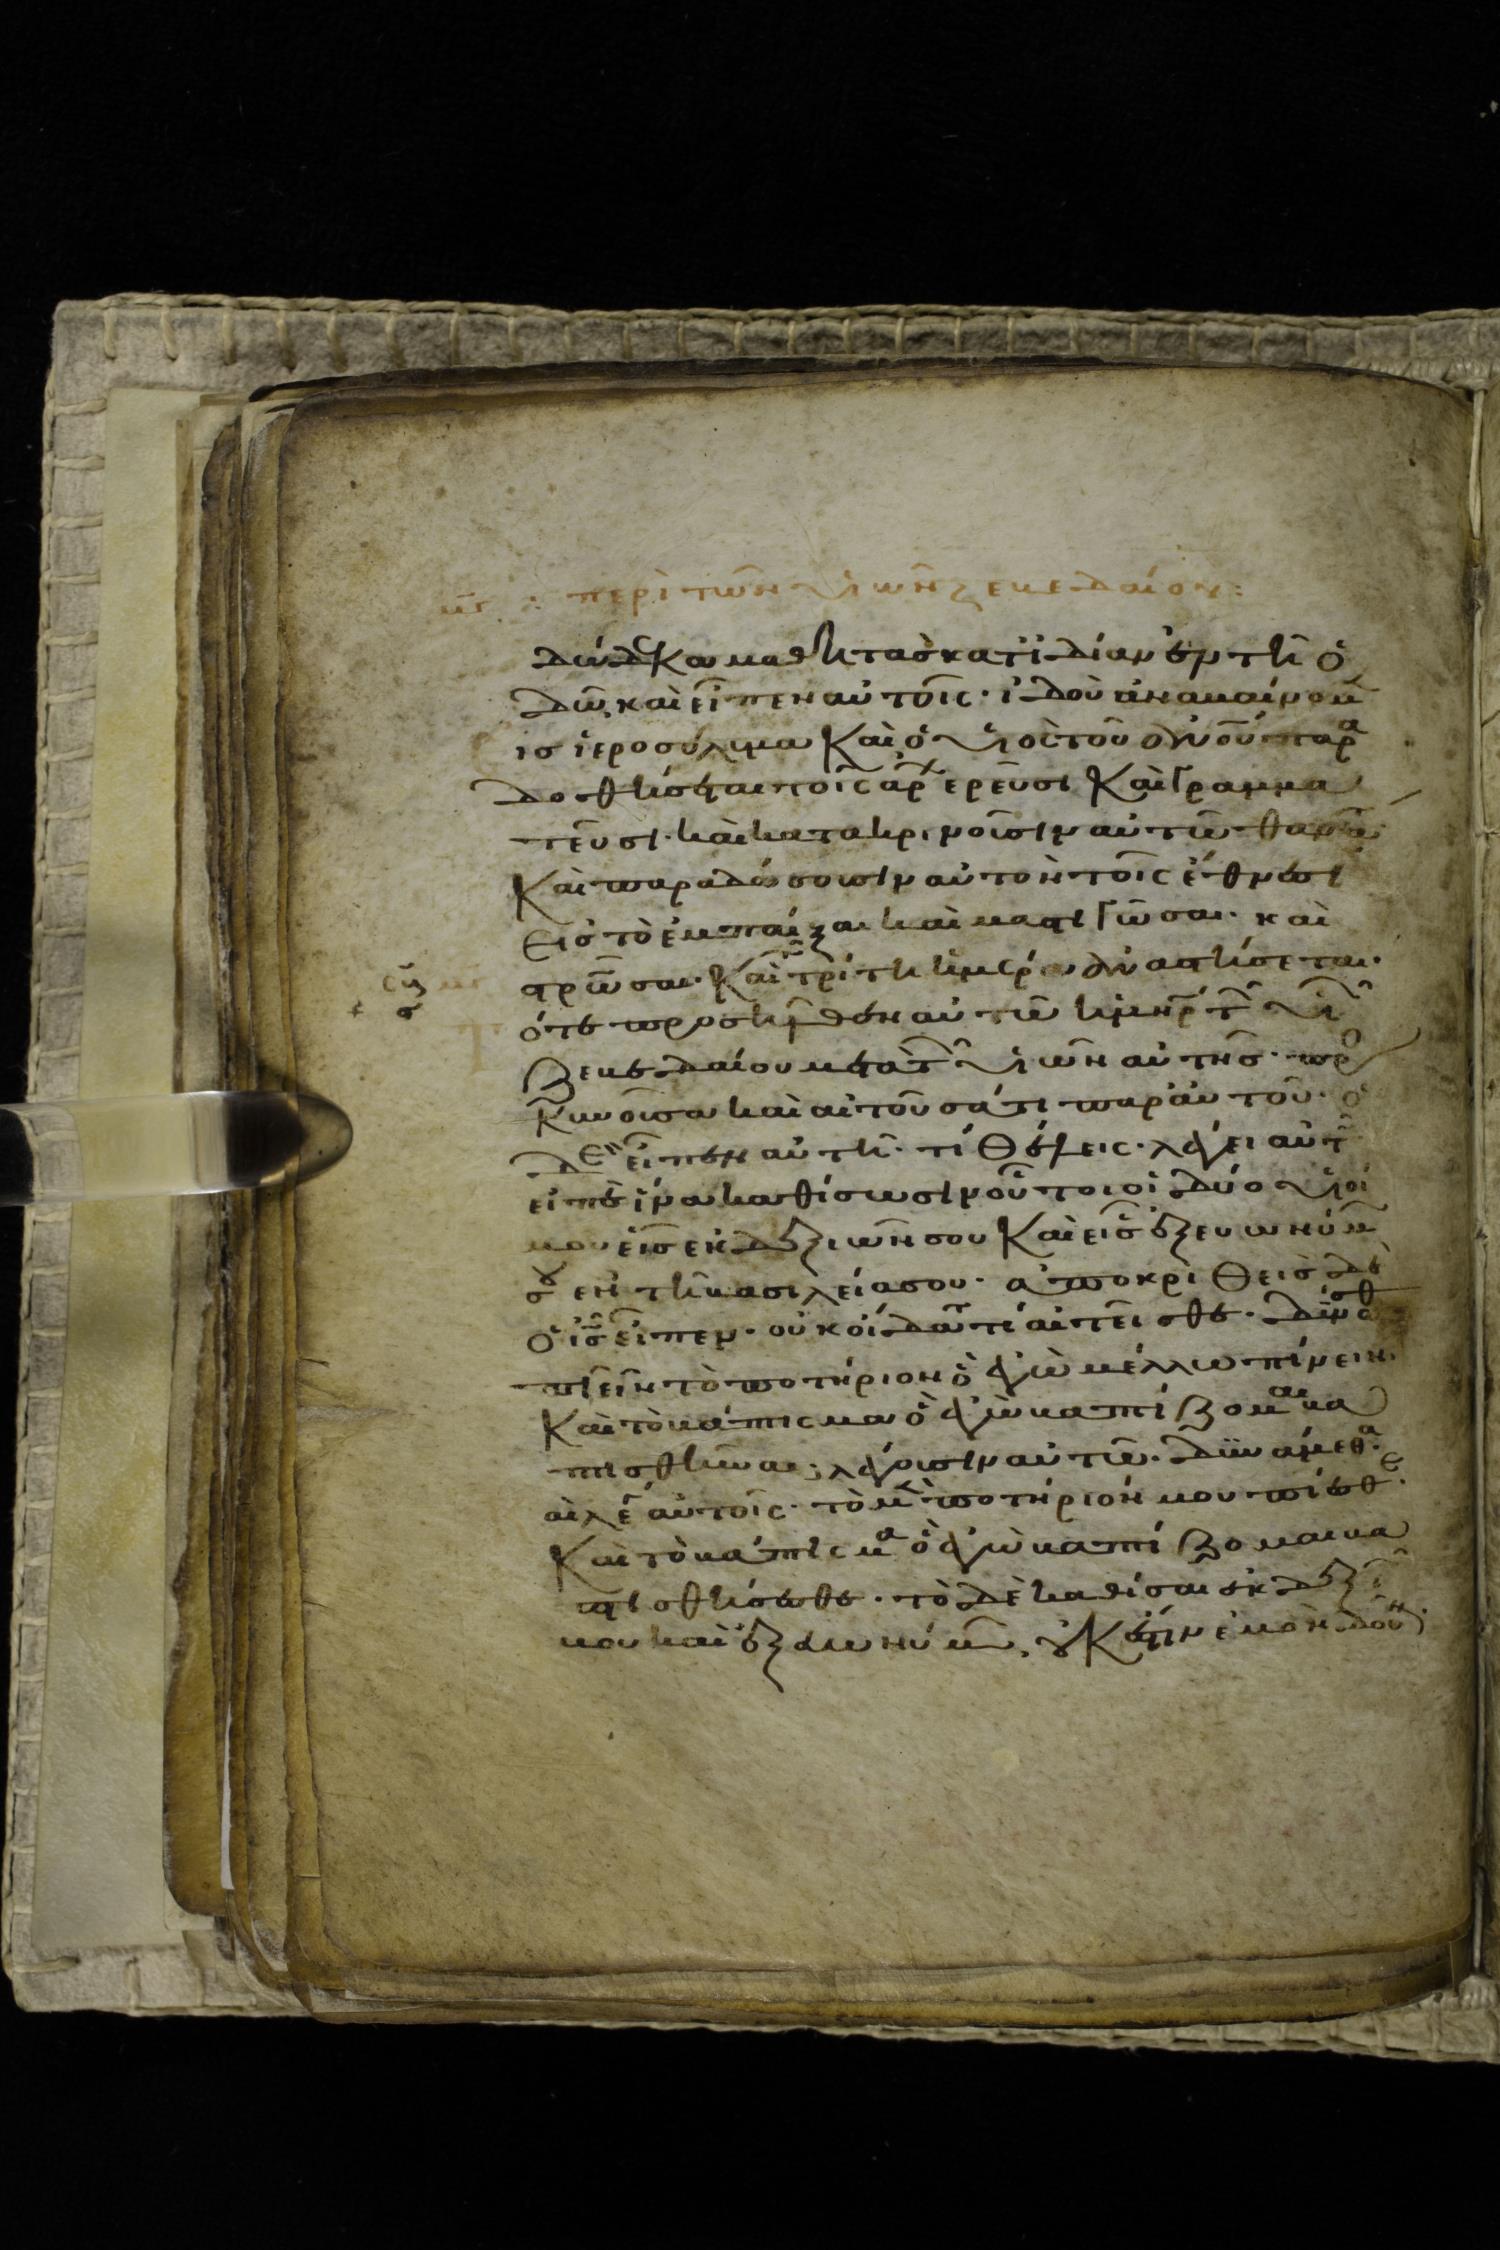 μϛ : περὶ τῶν υἱῶν ζεβεδαίου :
δώδεκα μαθητὰσ κατϊδίαν ἐν τῆ ὁ
δῶ, καὶ εἶπεν αὐτοῖς · ἰδοὺ ἀναβαίνομεν
ισ ἱεροσόλυμα καὶ ὁ υἱὸς τοῦ ανου παρα
δοθήσεται τοῖς ἀρχερεῦσι καὶ γραμμα
τεῦσι · καὶ κατακρινοῦσιν αὐτὸν θανάτω
καὶ παραδώσουσιν αὐτὸν τοῖς ἔθνεσι
εισ τὸ ἐμπαῖξαι καὶ μαστιγῶσαι · καὶ
στρῶσαι · καὶ τῆ τρίτη ἡμέρα ἀναστήσεται ·
ότε προσῆλθεν αὐτῶ ἡ μηρ τῶν υἱῶν
ζεβεδαίου μετὰ τῶν υἱῶν αὐτησ · προ
κυνοῦσα καὶ αἰτοῦσά τι παρ' ἀυτοῦ · ὁ
δε εἶπεν αὐτῆ · τί θέλεις · λέγει αὐτῶ
εἰπὲ ἵνα καθίσωσιν οὗτοι οἱ δύο υἱοί
μου εἷσ εκ δεξιῶν σου καὶ εἷσ ἐξ ευωνύμων
σου ἐν τῆ βασιλείασου · αποκριθεισ δὲ
ὁ ισ εἶπεν · οὐκ οίδατε τί αἰτεῖσθε · δύνασθε
πιεῖν τὸ ποτήριον ὃ ἐγὼ μέλλω πίνειν ·
καὶ τὸ βάπτισμα ὃ ἐγὼ βαπτίζομαι βα
πτισθῆναι ; λέγουσιν αὐτῶ · δϋνάμεθα ·
αὶ λέγει αὐτοῖς · τὸ μὲν ποτήριόν μου πίεσθε ·
καὶ τὸ βάπτισμα ὃ ἐγὼ βαπτίζομαι βα
πτισθήσεσθε · τὸ δὲ καθίσαι ἐκ δεξιῶν
μου καὶ ἐξ ευωνύμων, οὐκ ἔστιν ἐμὸν δοῦν